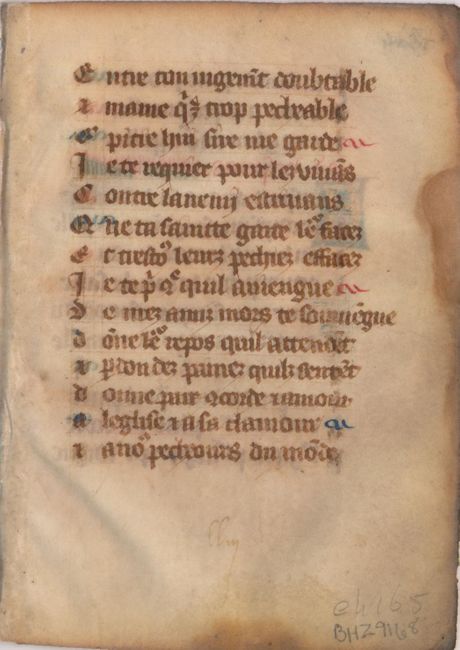 E ntre ton iugem̃t doubtable
⁊ mame q̃ ⁊ trop pecheable
e pitie hui sire me garde
J e te requier pour les viuãs
C ontre lanemi estriuans
Q ne ta saincte grace le᷒ faces
E t trestoꝰ leurs pechiez effaces
J e te p̃ q̃ quil auiengne
D e mez amis mors te souuiẽgne
d õne le᷒ repos quil attendẽt
⁊ p̱don dez painez quilz sentẽt
d onne paix ꝯcorde ⁊ amour
a leglise ⁊ a sa clamour
⁊ a noꝰ pecheours du mõde
eh 165
BHZ9168